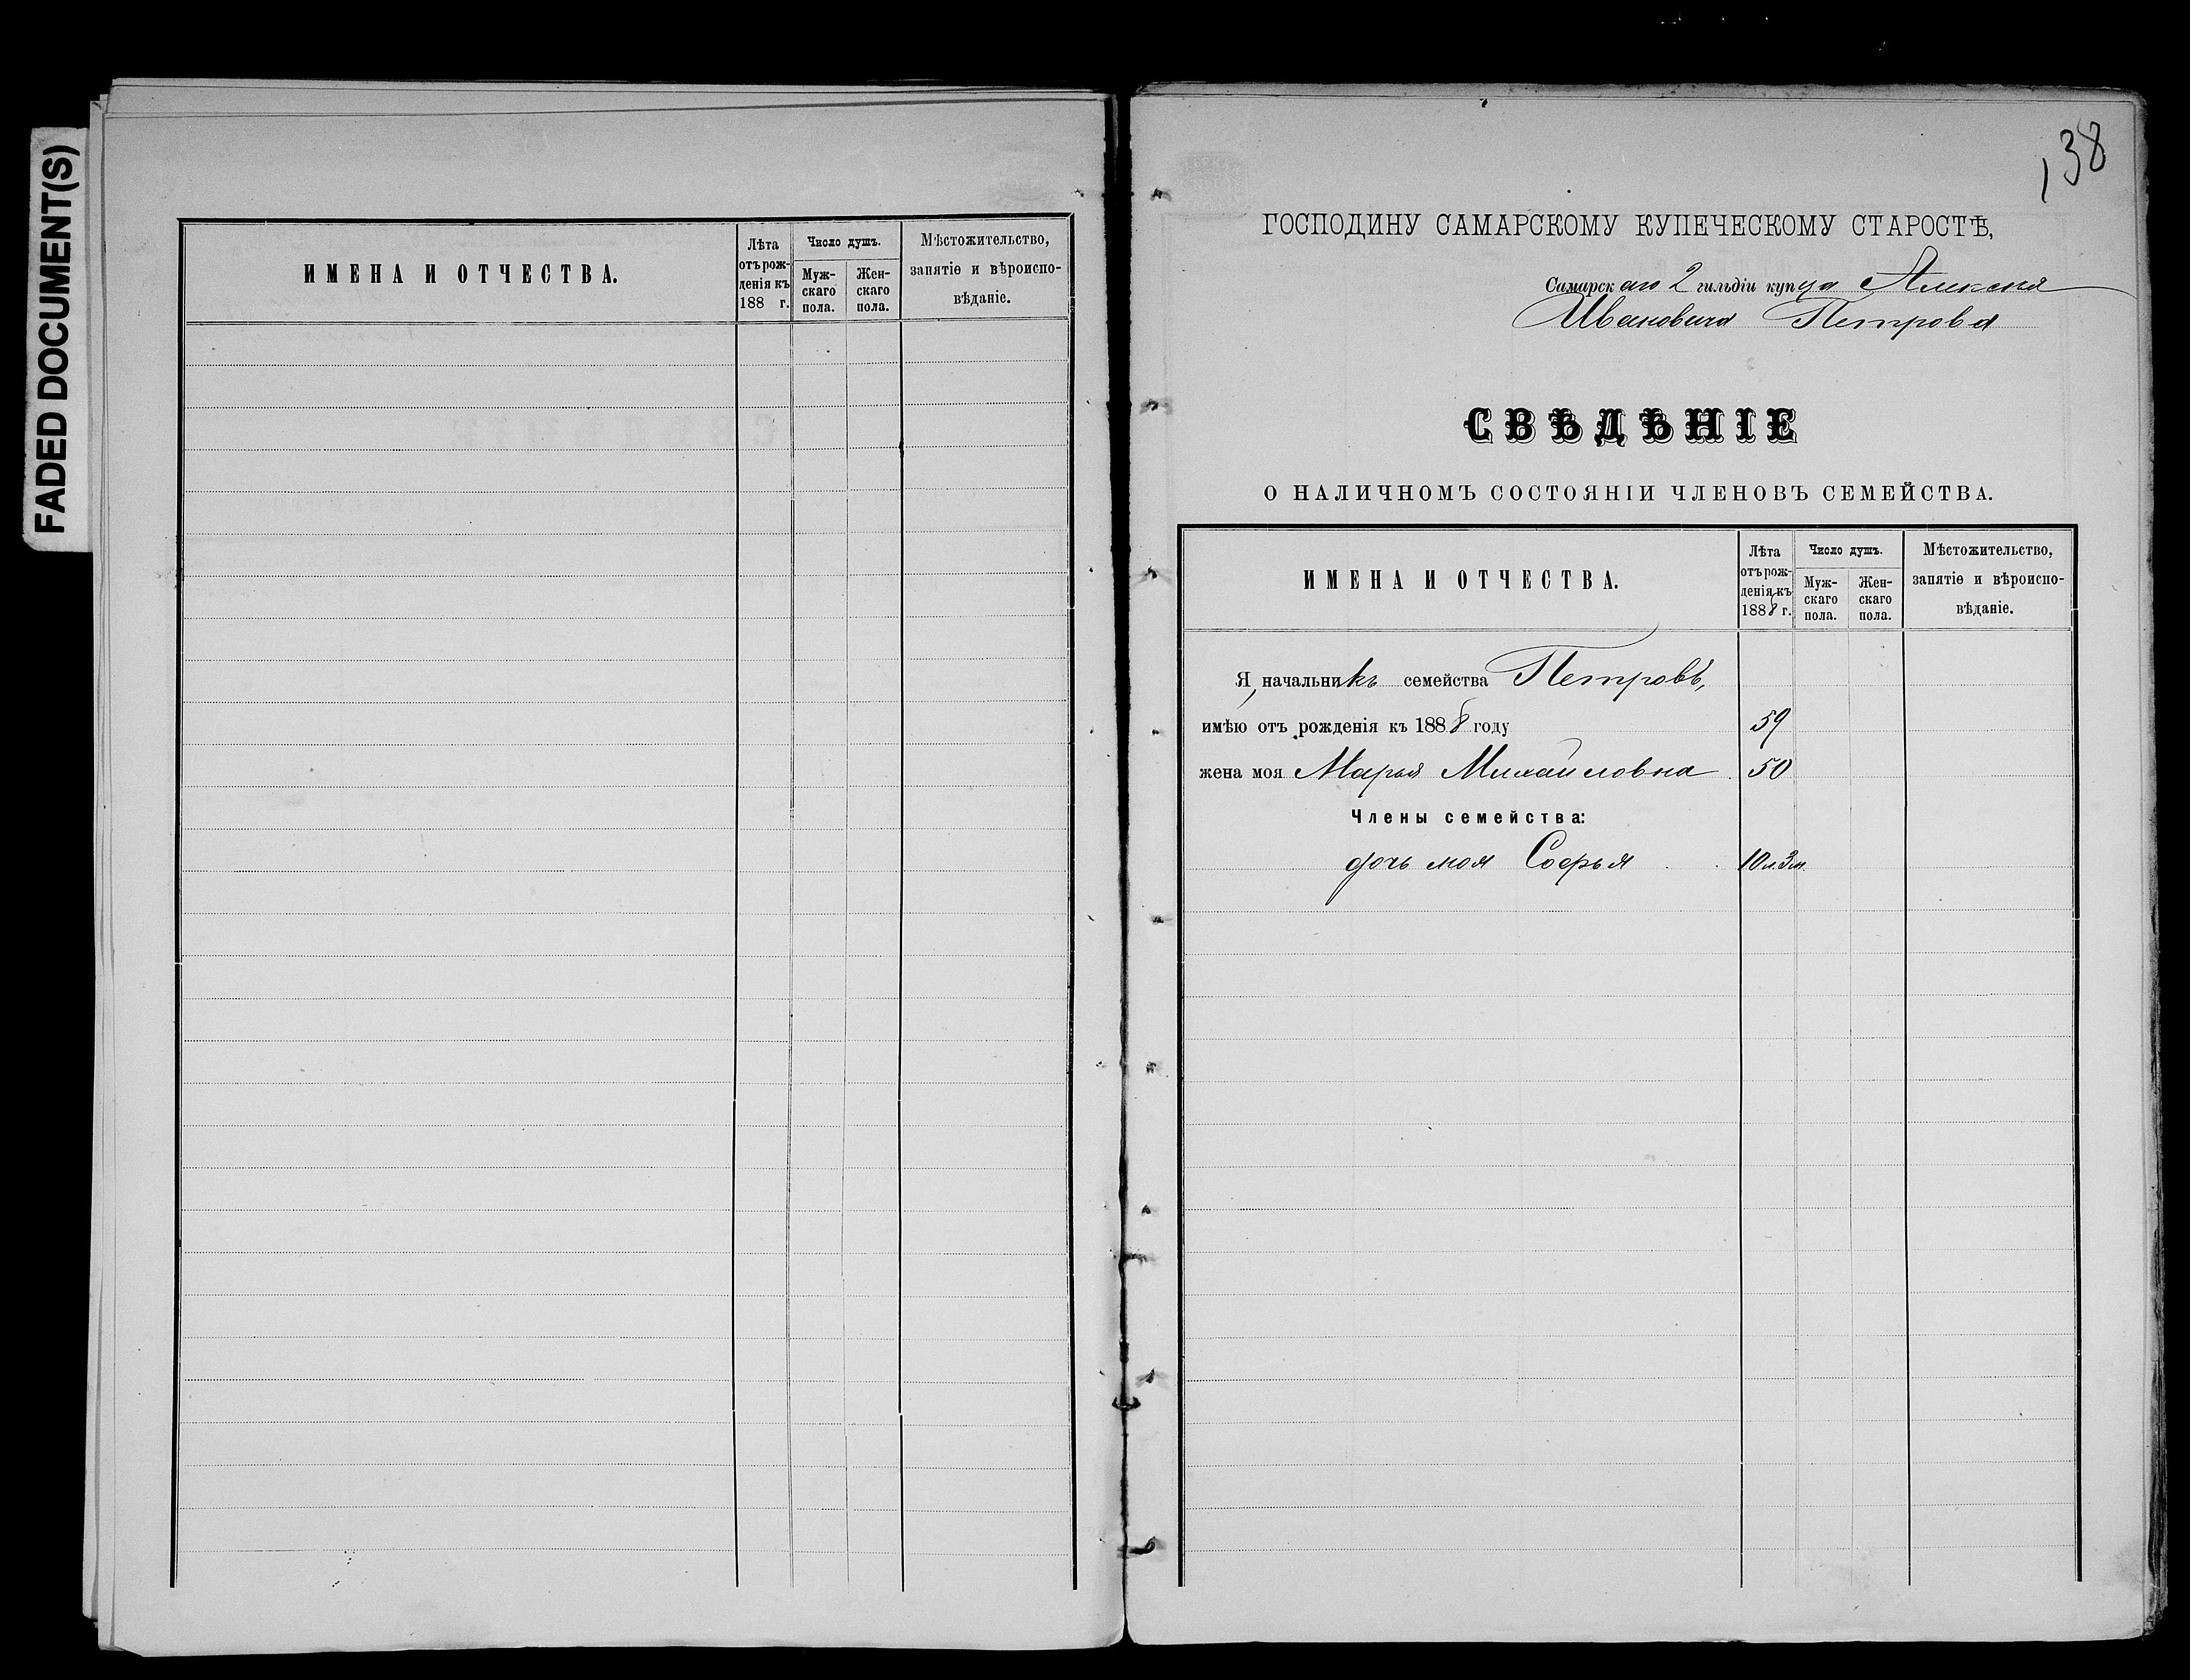 FADED DOCUMENT(S)
ИМЕНА И ОТЧЕСТВА.
Лѣта отъ рож-денія къ 188 г.
Число душъ.
Муж-скаго пола.
Жен-скаго пола.
Мѣстожительство, занятіе и вѣроиспо-вѣданіе.
138
ГОСПОДИНУ САМАРСКОМУ КУПЕЧЕСКОМУ СТАРОСТѢ,
Самарскаго 2 гильдіи купца Алексея
Ивановича Петрова
СВѢДѢНІЕ
О НАЛИЧНОМЪ СОСТОЯНІИ ЧЛЕНОВЪ СЕМЕЙСТВА.
ИМЕНА И ОТЧЕСТВА.
Лѣта отъ рож-денія къ 1888 г.
Число душъ.
Муж-скаго пола.
Жен-скаго пола.
Мѣстожительство, занятіе и вѣроиспо-вѣданіе.
Я, начальникъ семейства Петровъ,
имѣю отъ рожденія къ 1888 году 59
жена моя Марья Михайловна 50
Члены семейства:
дочь моя Софья 10 л. 3 м.